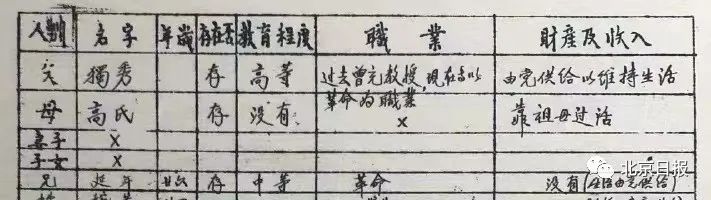 人別 名字 年歲 存在否 教育程度 職業 財產及收入
父 獨秀 存 高等 过去曾充教授，现在高以 由党供给以維持生活
革命为職業
母 高氏 存 没有 × 靠祖母过活
妻子 ×
子女 ×
兄 延年 存 中等 革命 没有(生活由党供给)
北京日报